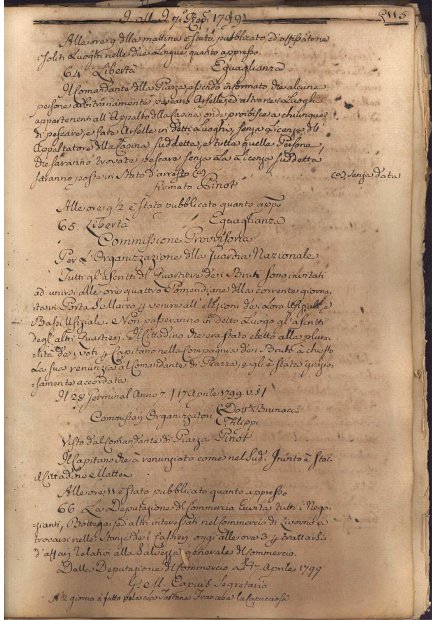 1799
115
Alle ore 9 della mattina è stato pubblicato, ed affisso ne
soliti Luoghi nelle due Lingue quanto appresso.
64 Libertà Eguaglianza
Il Comandante della Piazza essendo informato che alcune
persone arbitrariamente pescano Arselle, ed altro ne Luoghi
appartenenti all'Appalto della, onde proibisce a chiunque
di pescare, e fare Arselle in detti Luoghi, senza Licenza dell'
Appaltatore della suddetta, e tutte quelle Persone,
che saranno trovate pescare senza la Licenza suddetta
saranno poste in stato d'arresto senza data
Firmato Pinot
Alle ore 9½ è stato pubblicato quanto app.o
65 Libertà Eguaglianza
Commissione Provvisoria
Per l'Organizzazione della Guardia Nazionale
Tutti gl'ascritti al Quartiere dei Bruti sono invitati
ad unirsi alle ore quattro Pomeridiane della corrente giorna-
ta in Porta S. Marco p venire all'elezioni dei Loro Uffiziali, e
Bassi Uffiziali. e Non passeranno in detto Luogo gl'ascritti
degl'altri Quartieri. Il Cittadino che era stato eletto alla plura-
lità dei voti p Capitano nella Compagnia dei Bruti à chiesto
la sua renunzia al Comandante di Piazza, e gli è stata grazio-
samente accordata.
Li 28 Germinal Anno 7. / 17 Aprile 1799. V.S /
Commissarj Organizzatori Dott.e Brunacci
Filippi
Visto dal Comandante di Piazza Pinot
Il Capitano che à renunziato come nel Sud.o Invito è stato
il Cittadino
Alle ore 11 è stato pubblicato quanto appresso
66 La Deputazione di Commercio Invita tutti i Nego-
zianti, Bottegai ed altri interessati nel Commercio di Livorno a
trovarsi nelle Stanze dei oggi alle ore 3 p trattarvi
d'affari relativi alla Salvezza generale di Commercio.
Dalla Deputazione di Commercio a dì 17. Aprile 1799
G. M. Segretario
A ½ giorno à fatto Francese la Capricciosa